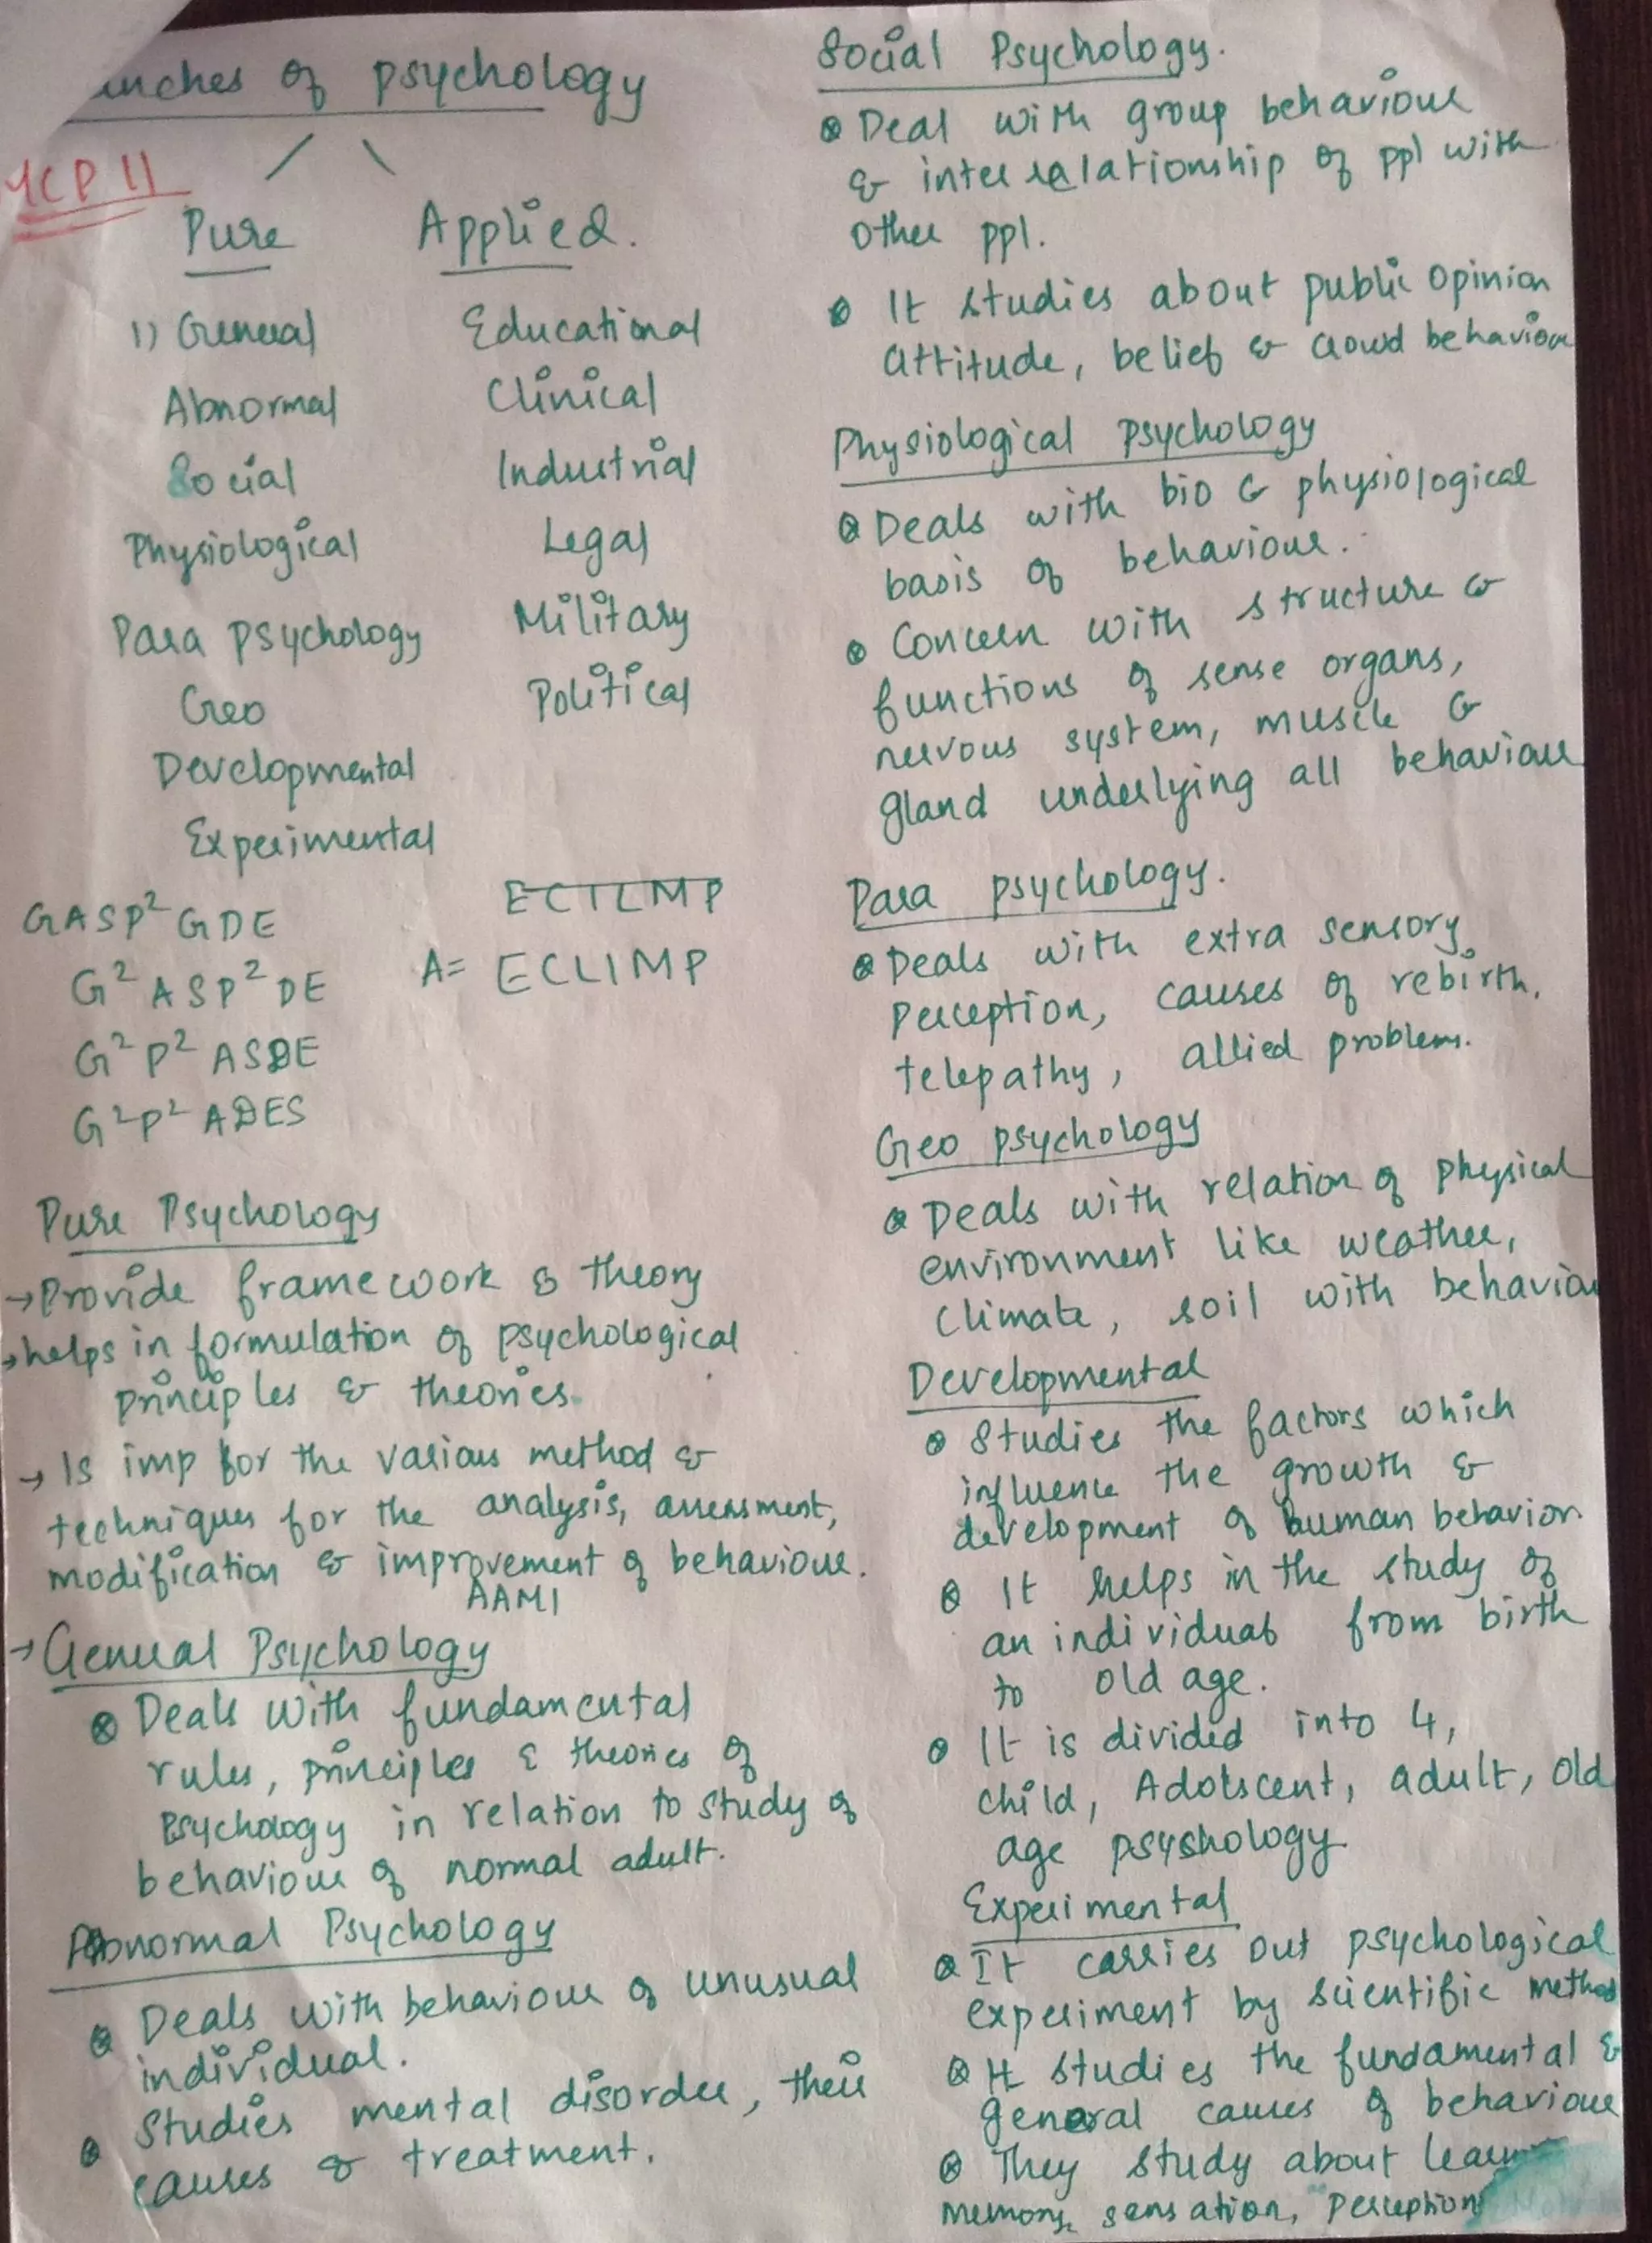 of psychology
Pure Applied.
1) General Educational
Abnormal Clinical
Social Industrial
Physiological Legal
Para psychology Military
Geo Political
Developmental
Experimental
GASP² GDE ECILMP
G² ASP² DE A= ECLIMP
G² P² ASDE
G² P² ADES
Pure Psychology
→ Provide framework & theory
→ helps in formulation of psychological
principles & theories.
→ Is imp for the various method &
techniques for the analysis, assessment,
modification & improvement of behaviour.
AAMI
→ General Psychology
⊗ Deals with fundamental
rules, principles & theories of
Psychology in relation to study of
behaviour of normal adult.
Abnormal Psychology
⊗ Deals with behaviour of unusual
individual.
⊗ Studies mental disorder, their
causes & treatment.
Social Psychology.
⊗ Deal with group behaviour
& inter relationship of ppl with
other ppl.
⊗ It studies about public opinion
attitude, belief & crowd behaviour
Physiological psychology
⊗ Deals with bio & physiological
basis of behaviour.
⊗ Concern with structure &
functions of sense organs,
nervous system, muscle &
gland underlying all behaviour
Para psychology.
⊗ Deals with extra sensory
perception, causes of rebirth,
telepathy, allied problems.
Geo psychology
⊗ Deals with relation of physical
environment like weather,
climate, soil with
Developmental
⊗ Studies the factors which
influence the growth &
development of human behavior
⊗ It helps in the study of
an individual from birth
to old age.
⊗ It is divided into 4,
child, Adolscent, adult, old
age psyshology
Experimental
⊗ It carries out psychological
experiment by scientific method
⊗ It studies the fundamental &
general causes of behaviour
⊗ They study about
memory, sensation, perception